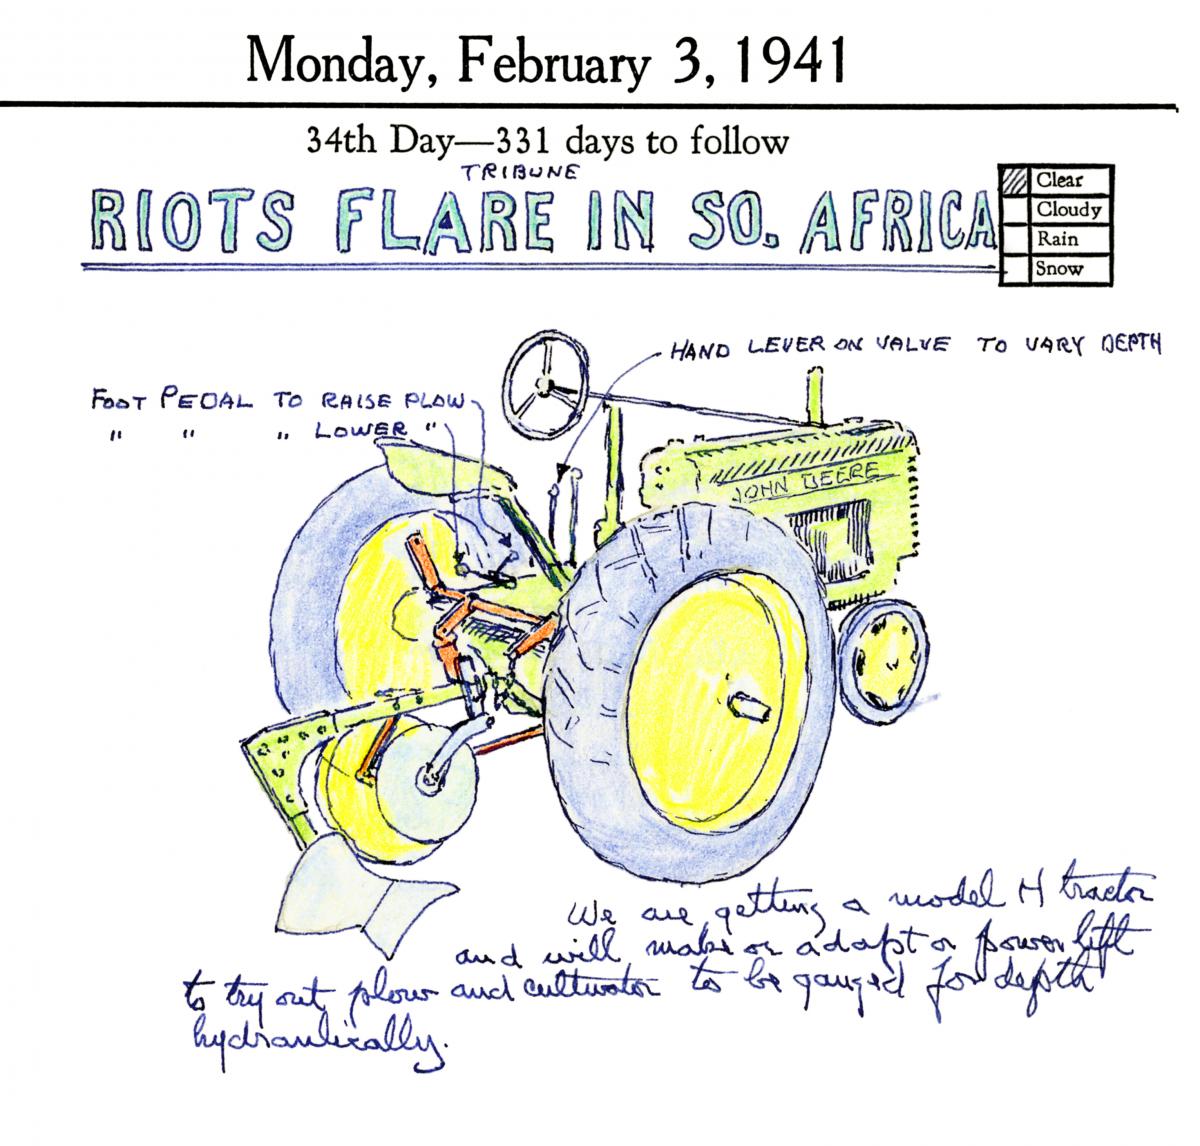 Monday, February 3, 1941
34th Day—331 days to follow
TRIBUNE
RIOTS FLARE IN SO. AFRICA
Clear
Cloudy
Rain
Snow
HAND LEVER ON VALVE TO VARY DEPTH
FOOT PEDAL TO RAISE PLOW
" " " LOWER "
JOHN DEERE
We are getting a model H tractor
and will make or adapt a power lift
to try out plow and cultivator to be gauged for depth
hydraulically.